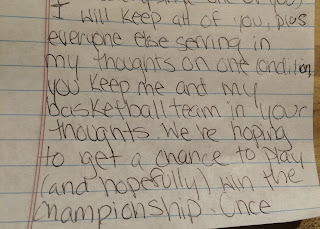 I will keep all of you, plus
everyone else serving in
my thoughts on one condition,
you keep me and my
basketball team in your
thoughts. We're hoping
to get a chance to play
(and hopefully) win the
championship. Once